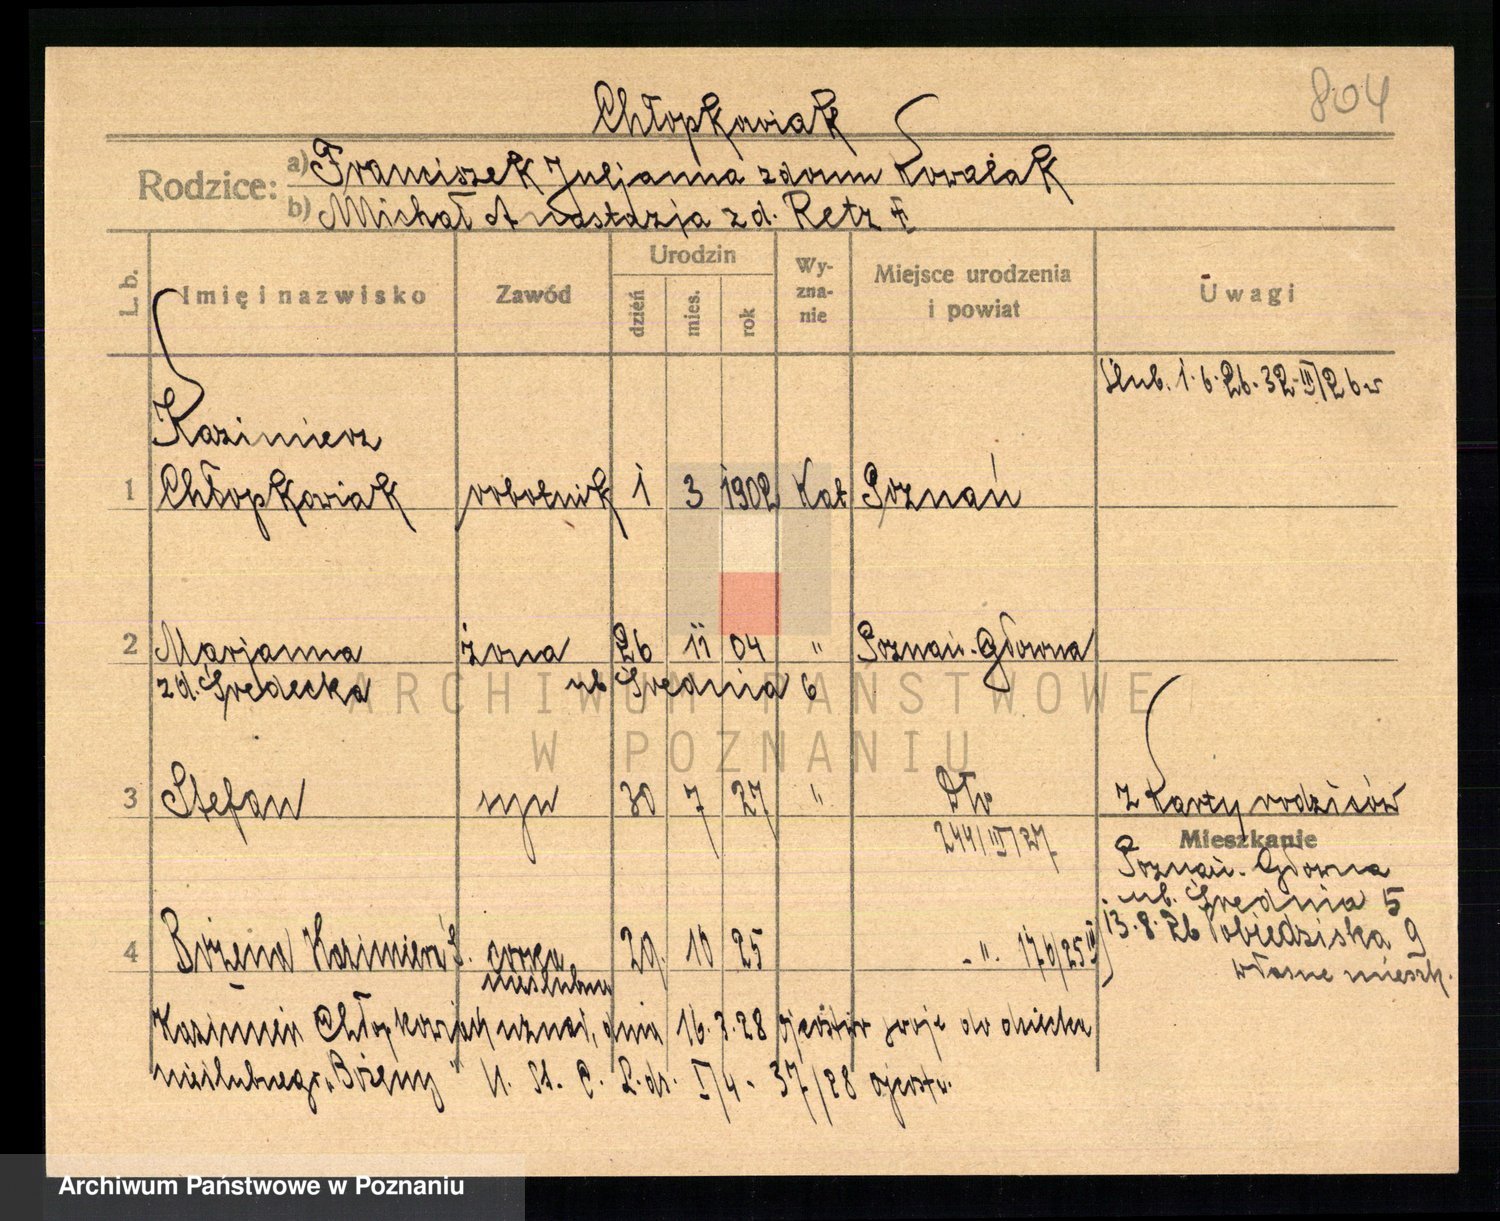 804
Chłopkowiak
Rodzice: a) Franciszek Juljanna z domu Kowalak
b) Michał Anastazja zd. Retz
L. b.
Imię i nazwisko
Zawód
Urodzin
dzień
mies.
rok
Wy-
zna-
nie
Miejsce urodzenia
i powiat
Uwagi
Ślub. 1.6.26. 32-III/26
Kazimierz
1 Chłopkowiak robotnik 1 3 1902 Kat Poznań
2 Marjanna żona 26 11 04 " Poznań-Główna
zd. Średecka ul. Średnia 6
ARCHIWUM PAŃSTWOWE
W POZNANIU
3 Stefan syn 30 7 27 " z Karty rodziców
244/III/27
Mieszkanie
Poznań-Główna
ul. Średnia 5
13.8.26 Pobiedziska 9
własne mieszk.
4 Bożena Kazimiera Ś. córka 29. 10 25 - ". 170/25
nieślubna
Kazimierz Chłopkowiak uznał, dnia 16.3.28 ojcostwo swoje do dziecka
nieślubnego "Bożeny" U. St. C. I/4 - 37/28 ojcostw.
Archiwum Państwowe w Poznaniu